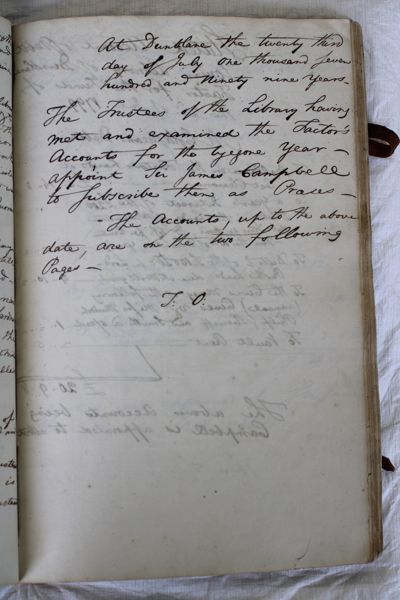 At Dunblane the twenty third
day of July one thousand seven
hundred and Ninety nine Years
The Trustees of the Library having
met and examined the Factor's
Accounts for the bygone Year —
appoint Sir James Campbell
to Subscribe them as Preses —
The Accounts, up to the above
date, are on the two following
Pages —
T. O.